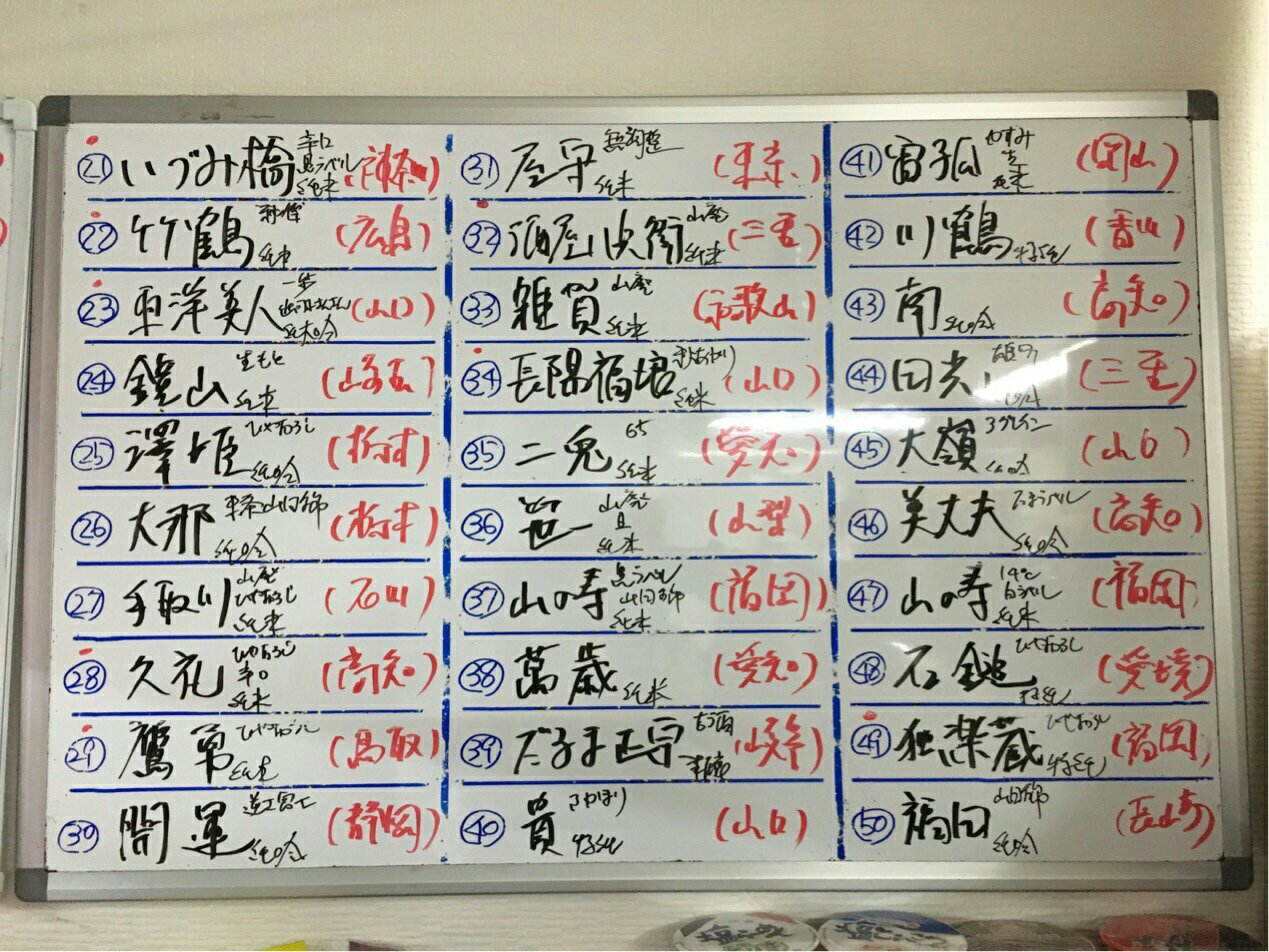 ㉑ いづみ橋 辛口 黒ラベル 純米 (神奈川)
㉒ 竹鶴 純米 (広島)
㉓ 東洋美人 一歩 純大吟 (山口)
㉔ 鏡山 生もと 純米 (埼玉)
㉕ 澤姫 ひやおろし 純吟 (栃木)
㉖ 大那 東条山田錦 純吟 (栃木)
㉗ 手取川 山廃 ひやおろし 純米 (石川)
㉘ 久礼 ひやおろし 辛口 純米 (高知)
㉙ 鷹勇 ひやおろし 純米 (鳥取)
㉚ 開運 純吟 (静岡)
㉛ 屋守 無調整 純米 (東京)
㉜ 酒屋八兵衛 山廃 純米 (三重)
㉝ 雑賀 山廃 純米 (和歌山)
㉞ 長陽福娘 秋あがり 純米 (山口)
㉟ 二兎 65 純米 (愛知)
㊱ 笹一 山廃 旦 純米 (山梨)
㊲ 山の壽 黒ラベル 山田錦 純米 (福岡)
㊳ 萬歳 純米 (愛知)
㊴ だるま正宗 (岐阜)
㊵ 貴 特純 (山口)
㊶ 雷子孤 やすみ 生 純米 (岡山)
㊷ 川鶴 特純 (香川)
㊸ 南 純吟 (高知)
㊹ 田光 (三重)
㊺ 大嶺 3グレイン (山口)
㊻ 美丈夫 純吟 (高知)
㊼ 山の壽 14℃ 白ラベル 純米 (福岡)
㊽ 石鎚 ひやおろし (愛媛)
㊾ 独楽蔵 ひやおろし 特純 (福岡)
㊿ 福田 山田錦 純吟 (長崎)